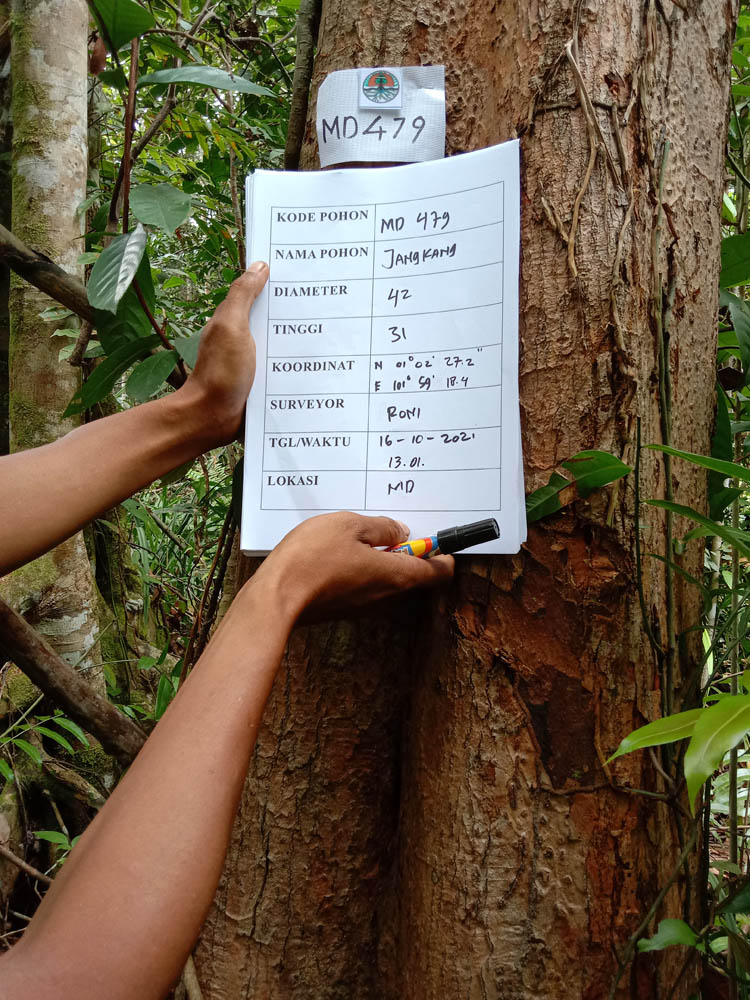 MD479
KODE POHON MD 479
NAMA POHON JANGKANG
DIAMETER 42
TINGGI 31
KOORDINAT N 01° 02' 27.2"
E 101° 59' 18.4
SURVEYOR RONI
TGL/WAKTU 16-10-2021
13.01.
LOKASI MD